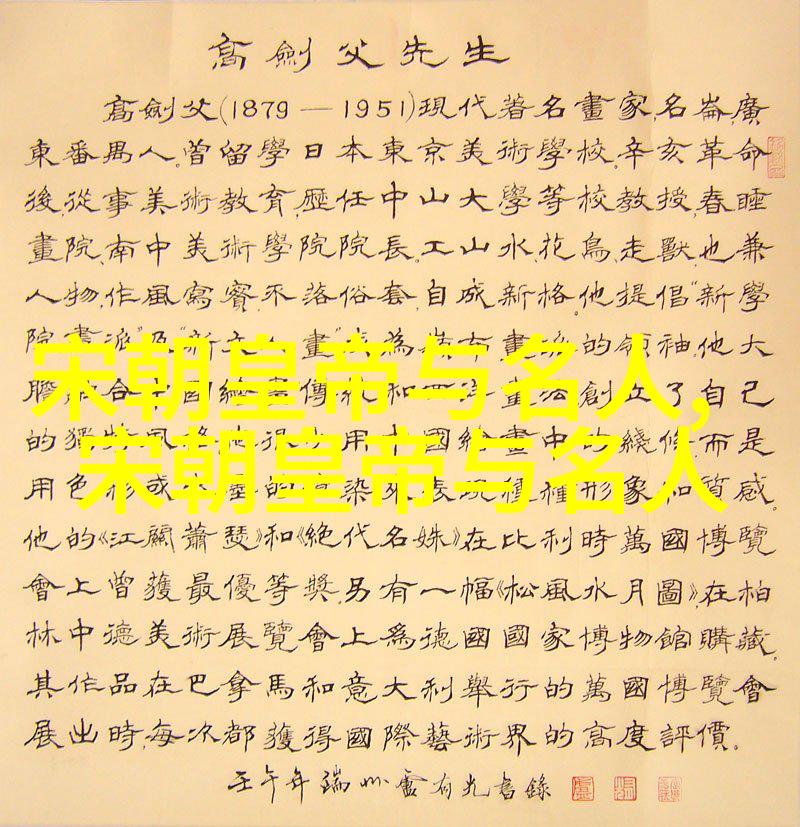 高劍父先生
高劍父(1879—1951)現代著名畫家,名崙,廣
東番禺人。曾留學日本東京美術學校。辛亥革命
後,從事美術教育,歷任中山大學等校教授,春睡
畫院、南中美術學院院長。工山水、花鳥、走獸,也兼
人物,作風寫實,不落俗套,自成新格。他提倡“新學
院畫派”及“新文人畫”
宋朝皇帝与名人,
的領袖。他大
創立了自己
宋朝皇帝与名人
的 用中國繪畫中的綫條,而是
用色 形象和質感。
他的《江關蕭瑟》和《絕代名姝》在比利時萬國博覽
會上曾獲最優等獎。另有一幅《松風水月圖》,在柏
林中德美術展覽會上爲德國國家博物館購藏。
其作品在巴拿馬和意大利舉行的萬國博覽會
展出時,每次都獲得國際藝術界的高度評價。
壬午年端州盧有光書錄